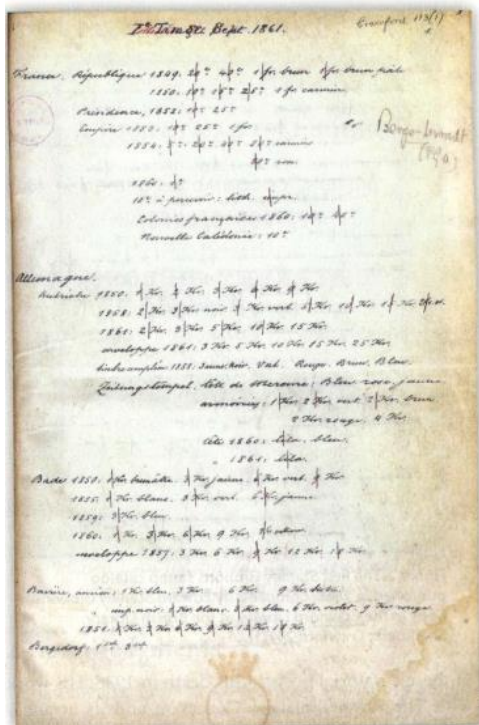 Sept. 1861.
Crawford 113(1)
France. République 1849: 20 c. 40 c. 1 fr. brun 1 fr. brun pâle
1850: 10 c. 15 c. 25 c. 1 fr. carmin.
Présidence, 1852: 10 c. 25 c.
Empire 1853: 10 c. 25 c. 1 fr.
1854: 5 c. 20 c. 40 c. 80 c. carmin
80 c. rose.
1860: 1 c.
10 c. à percevoir: lith.
Colonies françaises 1860: 10 c. 40 c.
Nouvelle Calédonie: 10 c.
Allemagne.
Autriche 1850: 1 Kr. 2 Kr. 3 Kr. 6 Kr. 9 Kr.
1858: 2 Kr. 3 Kr. noir. 3 Kr. vert. 5 Kr. 10 Kr. 15 Kr.
1861: 2 Kr. 3 Kr. 5 Kr. 10 Kr. 15 Kr.
enveloppe 1861: 3 Kr. 5 Kr. 10 Kr. 15 Kr. 25 Kr.
Rouge. Brun. Bleu.
Zeitungsstempel. tête de Mercure: Bleu rose, jaune
armoiries: 1 Kr. 2 Kr. vert 2 Kr. brun
2 Kr. rouge. 4 Kr.
tête 1860: lilas. bleu.
" 1861: lilas.
Bade 1850: 1 Kr. 3 Kr. jaune. 6 Kr. vert. 9 Kr.
1855: 1 Kr. blanc. 3 Kr. vert. 6 Kr. jaune.
1859: 3 Kr. bleu.
1860: 1 Kr. 3 Kr. 6 Kr. 9 Kr.
enveloppe 1857: 3 Kr. 6 Kr. 9 Kr. 12 Kr. 18 Kr.
Bavière, ancien: 1 Kr. bleu. 3 Kr. 6 Kr. 9 Kr.
" imp. noir: 1 Kr. blanc. 3 Kr. bleu. 6 Kr. violet. 9 Kr. rouge
1851: 1 Kr. 3 Kr. 6 Kr. 9 Kr. 12 Kr. 18 Kr.
Bergedorf: